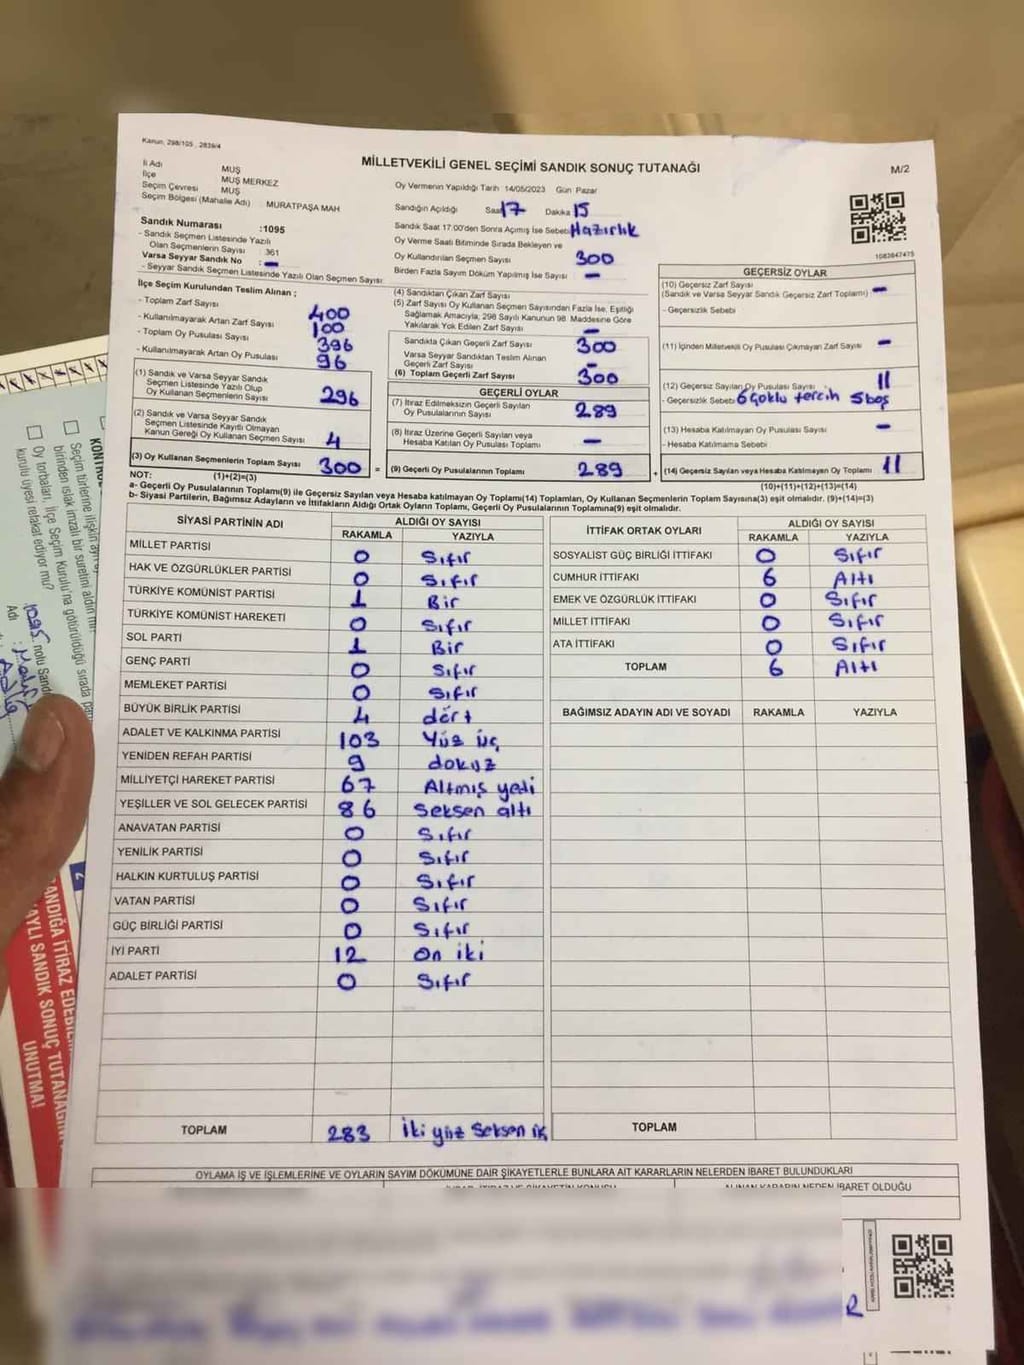 Kanun, 298/105 , 2839/4
MİLLETVEKİLİ GENEL SEÇİMİ SANDIK SONUÇ TUTANAĞI
M/2
İli Adı MUŞ
İlçe MUŞ MERKEZ
Seçim Çevresi MUŞ
Seçim Bölgesi (Mahalle Adı) MURATPAŞA MAH
Sandık Numarası :1095
- Sandık Seçmen Listesinde Yazılı
Olan Seçmenlerin Sayısı : 361
Varsa Seyyar Sandık No : -
- Seyyar Sandık Seçmen Listesinde Yazılı Olan Seçmen Sayısı:
Oy Vermenin Yapıldığı Tarih 14/05/2023 Gün Pazar
Sandığın Açıldığı Saat 17 Dakika 15
Sandık Saat 17:00'den Sonra Açımış İse Sebebi Hazırlık
Oy Verme Saati Bitiminde Sırada Bekleyen ve
Oy Kullandırılan Seçmen Sayısı 300
Birden Fazla Sayım Döküm Yapılmış İse Sayısı -
1083647475
İlçe Seçim Kurulundan Teslim Alınan ;
- Toplam Zarf Sayısı 400
- Kullanılmayarak Artan Zarf Sayısı 100
- Toplam Oy Pusulası Sayısı 396
- Kullanılmayarak Artan Oy Pusulası 96
(1) Sandık ve Varsa Seyyar Sandık
Seçmen Listesinde Yazılı Olup
Oy Kullanan Seçmenlerin Sayısı 296
(2) Sandık ve Varsa Seyyar Sandık
Seçmen Listesinde Kayıtlı Olmayan
Kanun Gereği Oy Kullanan Seçmen Sayısı 4
(3) Oy Kullanan Seçmenlerin Toplam Sayısı 300 =
(1)+(2)=(3)
(4) Sandıktan Çıkan Zarf Sayısı
(5) Zarf Sayısı Oy Kullanan Seçmen Sayısından Fazla İse, Eşitliği
Sağlamak Amacıyla; 298 Sayılı Kanunun 98. Maddesine Göre
Yakılarak Yok Edilen Zarf Sayısı -
Sandıkta Çıkan Geçerli Zarf Sayısı 300
Varsa Seyyar Sandıktan Teslim Alınan
Geçerli Zarf Sayısı -
(6) Toplam Geçerli Zarf Sayısı 300
GEÇERLİ OYLAR
(7) İtiraz Edilmeksizin Geçerli Sayılan
Oy Pusulalarının Sayısı 289
(8) İtiraz Üzerine Geçerli Sayılan veya
Hesaba Katılan Oy Pusulası Toplamı -
(9) Geçerli Oy Pusulalarının Toplamı 289 +
GEÇERSİZ OYLAR
(10) Geçersiz Zarf Sayısı
(Sandık ve Varsa Seyyar Sandık Geçersiz Zarf Toplamı) -
- Geçersizlik Sebebi
(11) İçinden Milletvekili Oy Pusulası Çıkmayan Zarf Sayısı -
(12) Geçersiz Sayılan Oy Pusulası Sayısı 11
- Geçersizlik Sebebi 6 Çoklu tercih 5 boş
(13) Hesaba Katılmayan Oy Pusulası Sayısı -
- Hesaba Katılmama Sebebi
(14) Geçersiz Sayılan veya Hesaba Katılmayan Oy Toplamı 11
(10)+(11)+(12)+(13)=(14)
NOT:
a- Geçerli Oy Pusulalarının Toplamı(9) ile Geçersiz Sayılan veya Hesaba katılmayan Oy Toplamı(14) Toplamları, Oy Kullanan Seçmenlerin Toplam Sayısına(3) eşit olmalıdır. (9)+(14)=(3)
b- Siyasi Partilerin, Bağımsız Adayların ve İttifakların Aldığı Ortak Oyların Toplamı, Geçerli Oy Pusulalarının Toplamına(9) eşit olmalıdır.
SİYASİ PARTİNİN ADI ALDIĞI OY SAYISI
RAKAMLA YAZIYLA
MİLLET PARTİSİ 0 Sıfır
HAK VE ÖZGÜRLÜKLER PARTİSİ 0 Sıfır
TÜRKİYE KOMÜNİST PARTİSİ 1 Bir
TÜRKİYE KOMÜNİST HAREKETİ 0 Sıfır
SOL PARTİ 1 Bir
GENÇ PARTİ 0 Sıfır
MEMLEKET PARTİSİ 0 Sıfır
BÜYÜK BİRLİK PARTİSİ 4 dört
ADALET VE KALKINMA PARTİSİ 103 Yüz üç
YENİDEN REFAH PARTİSİ 9 dokuz
MİLLİYETÇİ HAREKET PARTİSİ 67 Altmış yedi
YEŞİLLER VE SOL GELECEK PARTİSİ 86 Seksen altı
ANAVATAN PARTİSİ 0 Sıfır
YENİLİK PARTİSİ 0 Sıfır
HALKIN KURTULUŞ PARTİSİ 0 Sıfır
VATAN PARTİSİ 0 Sıfır
GÜÇ BİRLİĞİ PARTİSİ 0 Sıfır
İYİ PARTİ 12 On iki
ADALET PARTİSİ 0 Sıfır
TOPLAM 283 İki yüz Seksen
İTTİFAK ORTAK OYLARI ALDIĞI OY SAYISI
RAKAMLA YAZIYLA
SOSYALİST GÜÇ BİRLİĞİ İTTİFAKI 0 Sıfır
CUMHUR İTTİFAKI 6 Altı
EMEK VE ÖZGÜRLÜK İTTİFAKI 0 Sıfır
MİLLET İTTİFAKI 0 Sıfır
ATA İTTİFAKI 0 Sıfır
TOPLAM 6 Altı
BAĞIMSIZ ADAYIN ADI VE SOYADI RAKAMLA YAZIYLA
TOPLAM
OYLAMA İŞ VE İŞLEMLERİNE VE OYLARIN SAYIM DÖKÜMÜNE DAİR ŞİKAYETLERLE BUNLARA AİT KARARLARIN NELERDEN İBARET BULUNDUKLARI
ALINAN KARARIN NEDEN İBARET OLDUĞU
Seçim türlerine ilişkin
birinden ıslak imzalı bir suretini aldın mı?
Oy torbaları, İlçe Seçim Kurulu'na götürüldüğü sırada
kurulu üyesi refakat ediyor mu?
1095 nolu
Adı
UNUTMA!